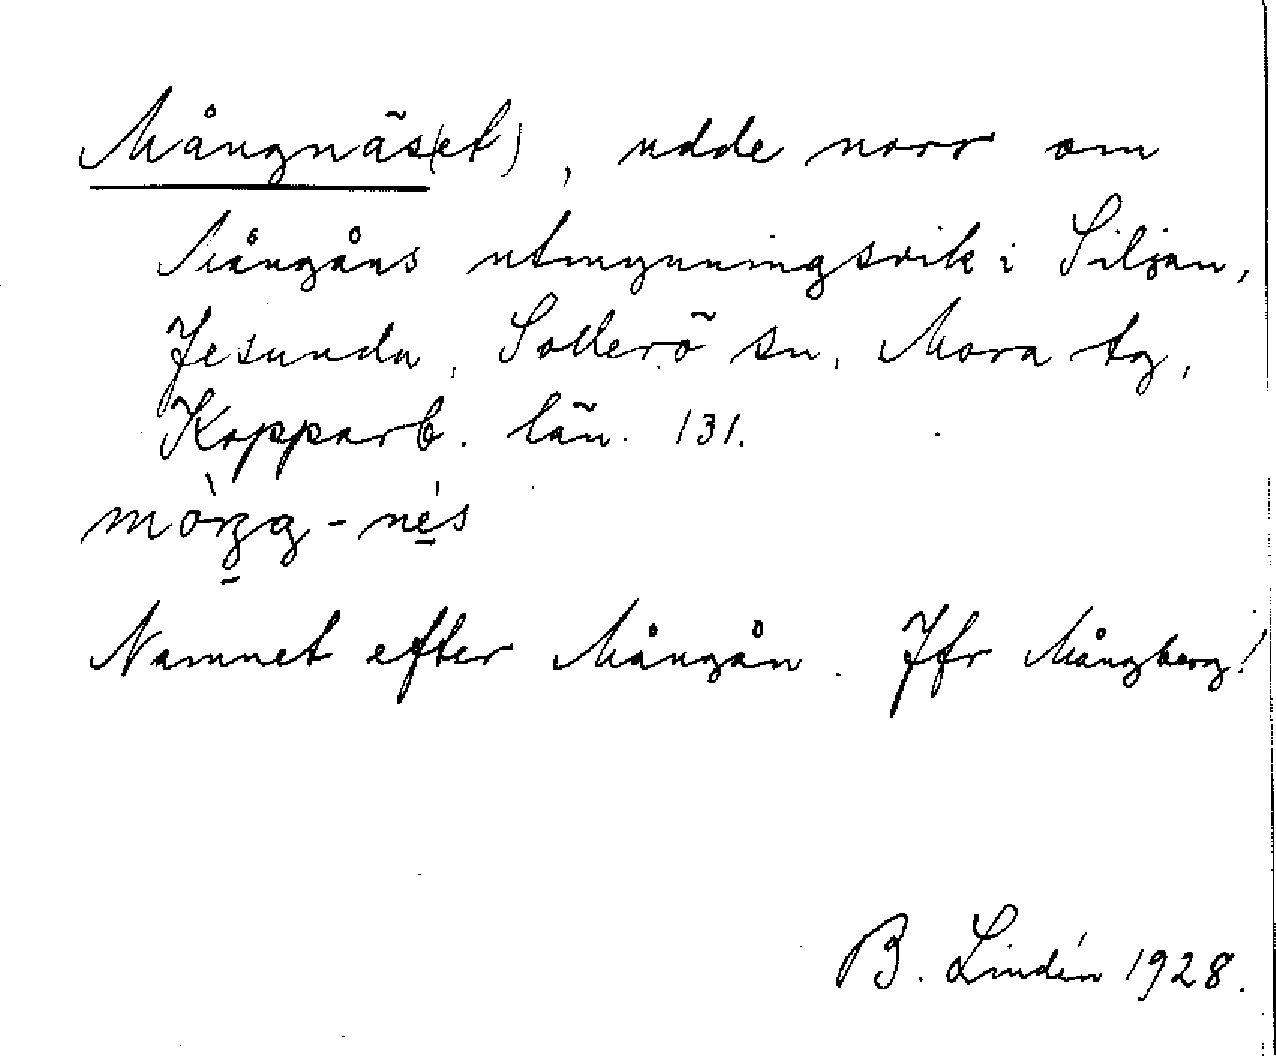 Mångnäs(et), udde norr om
Mångåns utmynningsvik i Siljan,
Jesunda, Sollerö sn, Mora tg,
Kopparb. län. 131.
mòŋg-nés
Namnet efter Mångån. Jfr Mångberg!
B. Lindén 1928.